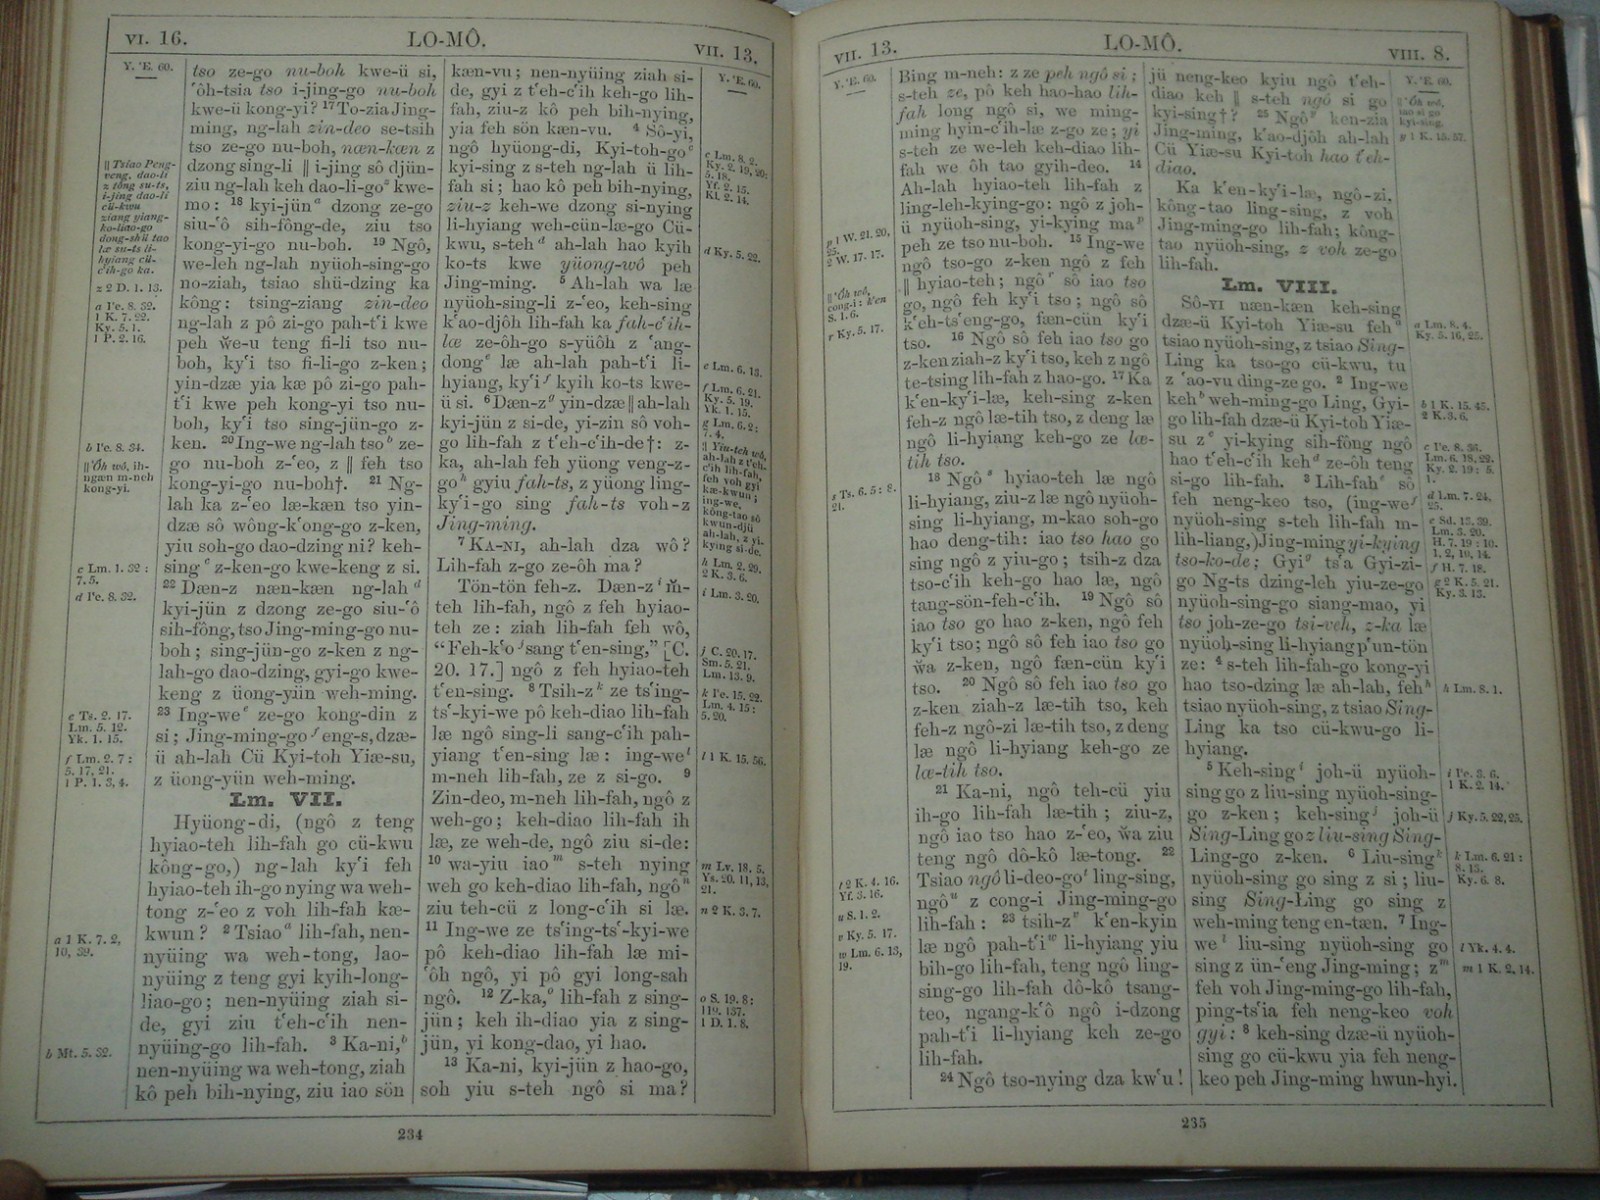 VI. 16.
LO-MÔ.
VII. 13.
Y. 'E. 60.
|| Tsiao Peng-
veng, dao-li
z tông su-ts,
i-jing dao-li
cü-kwu
ziang yiang-
ko-liao-go
dong-shü tao
læ su-ts li-
hyiang cü-
c'ih-go ka.
z 2 D. 1. 13.
a Pe. 8. 32.
1 K. 7. 22.
Ky. 5. 1.
1 P. 2. 16.
b Pe. 8. 34.
|| 'Ôh wô, ih-
ngæn m-neh
kong-yi.
c Lm. 1. 32 :
7. 5.
d Pe. 8. 32.
e Ts. 2. 17.
Lm. 5. 12.
Yk. 1. 15.
f Lm. 2. 7 :
5. 17, 21.
1 P. 1. 3, 4.
a 1 K. 7. 2,
10, 39.
b Mt. 5. 32.
tso ze-go nu-boh kwe-ü si,
'ôh-tsia tso i-jing-go nu-boh
kwe-ü kong-yi? 17 To-zia Jing-
ming, ng-lah zin-deo se-tsih
tso ze-go nu-boh, næn-kæn z
dzong sing-li || i-jing sô djün-
ziu ng-lah keh dao-li-go z kwe-
mo: 18 kyi-jün a dzong ze-go
siu-'ô sih-fông-de, ziu tso
kong-yi-go nu-boh. 19 Ngô,
we-leh ng-lah nyüoh-sing-go
no-ziah, tsiao shü-dzing ka
kông: tsing-ziang zin-deo
ng-lah z pô zi-go pah-t'i kwe
peh we-u teng fi-li tso nu-
boh, ky'i tso fi-li-go z-ken;
yin-dzæ yia kæ pô zi-go pah-
t'i kwe peh kong-yi tso nu-
boh, ky'i tso sing-jün-go z-
ken. 20 Ing-we ng-lah tso b ze-
go nu-boh z-'eo, z || feh tso
kong-yi-go nu-boh†. 21 Ng-
lah ka z-'eo læ-kæn tso yin-
dzæ sô wông-k'ong-go z-ken,
yiu soh-go dao-dzing ni? keh-
sing c z-ken-go kwe-keng z si.
22 Dæn-z næn-kæn ng-lah d
kyi-jün z dzong ze-go siu-'ô
sih-fông, tso Jing-ming-go nu-
boh; sing-jün-go z-ken z ng-
lah-go dao-dzing, gyi-go kwe-
keng z üong-yün weh-ming.
23 Ing-we e ze-go kong-din z
si; Jing-ming-go f eng-s, dzæ-
ü ah-lah Cü Kyi-toh Yiæ-su,
z üong-yün weh-ming.
Lm. VII.
Hyüong-di, (ngô z teng
hyiao-teh lih-fah go cü-kwu
kông-go,) ng-lah ky'i feh
hyiao-teh ih-go nying wa weh-
tong z-'eo z voh lih-fah kæ-
kwun? 2 Tsiao a lih-fah, nen-
nyüing wa weh-tong, lao-
nyüing z teng gyi kyih-long-
liao-go; nen-nyüing ziah si-
de, gyi ziu t'eh-c'ih nen-
nyüing-go lih-fah. 3 Ka-ni, b
nen-nyüing wa weh-tong, ziah
kô peh bih-nying, ziu iao sön
kæn-vu; nen-nyüing ziah si-
de, gyi z t'eh-c'ih keh-go lih-
fah, ziu-z kô peh bih-nying,
yia feh sön kæn-vu. 4 Sô-yi,
ngô hyüong-di, Kyi-toh-go c
kyi-sing z s-teh ng-lah ü lih-
fah si; hao kô peh bih-nying,
ziu-z keh-we dzong si-nying
li-hyiang weh-cün-læ-go Cü-
kwu, s-teh d ah-lah hao kyih
ko-ts kwe yüong-wô peh
Jing-ming. 5 Ah-lah wa læ
nyüoh-sing-li z-'eo, keh-sing
k'ao-djôh lih-fah ka fah-c'ih-
læ ze-ôh-go s-yüôh z 'ang-
dong e læ ah-lah pah-t'i li-
hyiang, ky'i f kyih ko-ts kwe-
ü si. 6 Dæn-z g yin-dzæ || ah-lah
kyi-jün z si-de, yi-zin sô voh-
go lih-fah z t'eh-c'ih-de†: z-
ka, ah-lah feh yüong veng-z-
go h gyiu fah-ts, z yüong ling-
ky'i-go sing fah-ts voh-z
Jing-ming.
7 KA-NI, ah-lah dza wô?
Lih-fah z-go ze-ôh ma?
Tön-tön feh-z. Dæn-z i m̆-
teh lih-fah, ngô z feh hyiao-
teh ze: ziah lih-fah feh wô,
"Feh-k'o j sang t'en-sing," [C.
20. 17.] ngô z feh hyiao-teh
t'en-sing. 8 Tsih-z k ze ts'ing-
ts'-kyi-we pô keh-diao lih-fah
læ ngô sing-li sang-c'ih pah-
yiang t'en-sing læ: ing-we l
m-neh lih-fah, ze z si-go. 9
Zin-deo, m-neh lih-fah, ngô z
weh-go; keh-diao lih-fah ih
læ, ze weh-de, ngô ziu si-de:
10 wa-yiu iao m s-teh nying
weh go keh-diao lih-fah, ngô n
ziu teh-cü z long-c'ih si læ.
11 Ing-we ze ts'ing-ts'-kyi-we
pô keh-diao lih-fah læ mi-
'ôh ngô, yi pô gyi long-sah
ngô. 12 Z-ka, o lih-fah z sing-
jün; keh ih-diao yia z sing-
jün, yi kong-dao, yi hao.
13 Ka-ni, kyi-jün z hao-go,
soh yiu s-teh ngô si ma?
Y. 'E. 60.
c Lm. 8. 2.
Ky. 2. 19, 20:
5. 18.
Yf. 2. 15.
Kl. 2. 14.
d Ky. 5. 22.
e Lm. 6. 13.
f Lm. 6. 21.
Ky. 5. 19.
Yk. 1. 15.
g Lm. 6. 2:
7. 4.
|| Yiu-teh wô,
ah-lah z t'eh-
c'ih lih-fah,
feh voh gyi
kæ-kwun;
ing-we,
kông-tao sô
kwun-djü
ah-lah, z yi-
kying si-de.
h Lm. 2. 29.
2 K. 3. 6.
i Lm. 3. 20.
j C. 20. 17.
Sm. 5. 21.
Lm. 13. 9.
k Pe. 15. 22.
Lm. 4. 15:
5. 20.
l 1 K. 15. 56.
m Lv. 18. 5.
Ys. 20. 11, 13,
21.
n 2 K. 3. 7.
o S. 19. 8:
119. 137.
1 D. 1. 8.
234
VII. 13.
LO-MÔ.
VIII. 8.
Y. 'E. 60.
p 1 W. 21. 20,
25.
2 W. 17. 17.
|| 'Ôh wô,
cong-i: k'en
S. 1. 6.
r Ky. 5. 17.
s Ts. 6. 5: 8.
21.
t 2 K. 4. 16.
Yf. 3. 16.
u S. 1. 2.
v Ky. 5. 17.
w Lm. 6. 13,
19.
Bing m-neh: z ze peh ngô si;
s-teh ze, pô keh hao-hao lih-
fah long ngô si, we ming-
ming hyin-c'ih-læ z-go ze; yi
s-teh ze we-leh keh-diao lih-
fah we ôh tao gyih-deo. 14
Ah-lah hyiao-teh lih-fah z
ling-leh-kying-go: ngô z joh-
ü nyüoh-sing, yi-kying ma p
peh ze tso nu-boh. 15 Ing-we
ngô tso-go z-ken ngô z feh
|| hyiao-teh; ngô r sô iao tso
go, ngô feh ky'i tso; ngô sô
k'eh-ts'eng-go, fæn-cün ky'i
tso. 16 Ngô sô feh iao tso go
z-ken ziah-z ky'i tso, keh z ngô
te-tsing lih-fah z hao-go. 17 Ka
k'en-ky'i-læ, keh-sing z-ken
feh-z ngô læ-tih tso, z deng læ
ngô li-hyiang keh-go ze læ-
tih tso.
18 Ngô s hyiao-teh læ ngô
li-hyiang, ziu-z læ ngô nyüoh-
sing li-hyiang, m-kao soh-go
hao deng-tih: iao tso hao go
sing ngô z yiu-go; tsih-z dza
tso-c'ih keh-go hao læ, ngô
tang-sön-feh-c'ih. 19 Ngô sô
iao tso go hao z-ken, ngô feh
ky'i tso; ngô sô feh iao tso go
wa z-ken, ngô fæn-cün ky'i
tso. 20 Ngô sô feh iao tso go
z-ken ziah-z ky'i tso, keh
feh-z ngô-zi læ-tih tso, z deng
læ ngô li-hyiang keh-go ze
læ-tih tso.
21 Ka-ni, ngô teh-cü yiu
ih-go lih-fah læ-tih; ziu-z,
ngô iao tso hao z-'eo, wa ziu
teng ngô dô-kô læ-tong. 22
Tsiao ngô li-deo-go t ling-sing,
ngô u z cong-i Jing-ming-go
lih-fah: 23 tsih-z v k'en-kyin
læ ngô pah-t'i w li-hyiang yiu
bih-go lih-fah, teng ngô ling-
sing-go lih-fah dô-kô tsang-
teo, ngang-k'ô ngô i-dzong
pah-t'i li-hyiang keh ze-go
lih-fah.
24 Ngô tso-nying dza kw'u!
jü neng-keo kyiu ngô t'eh-
diao keh || s-teh ngô si go
kyi-sing†? 25 Ngô p ken-zia
Jing-ming, k'ao-djôh ah-lah
Cü Yiæ-su Kyi-toh hao t'eh-
diao.
Ka k'en-ky'i-læ, ngô-zi,
kông-tao ling-sing, z voh
Jing-ming-go lih-fah; kông-
tao nyüoh-sing, z voh ze-go
lih-fah.
Lm. VIII.
SÔ-YI næn-kæn keh-sing
dzæ-ü Kyi-toh Yiæ-su feh a
tsiao nyüoh-sing, z tsiao Sing-
Ling ka tso-go cü-kwu, tu
z 'ao-vu ding-ze go. 2 Ing-we
keh b weh-ming-go Ling, Gyi-
go lih-fah dzæ-ü Kyi-toh Yiæ-
su z c yi-kying sih-fông ngô
hao t'eh-c'ih keh d ze-ôh teng
si-go lih-fah. 3 Lih-fah e sô
feh neng-keo tso, (ing-we f
nyüoh-sing s-teh lih-fah m-
lih-liang,) Jing-ming yi-kying
tso-ko-de; Gyi g ts'a Gyi-zi-
go Ng-ts dzing-leh yiu-ze-go
nyüoh-sing-go siang-mao, yi
tso joh-ze-go tsi-veh, z-ka læ
nyüoh-sing li-hyiang p'un-tön
ze: 4 s-teh lih-fah-go kong-yi
hao tso-dzing læ ah-lah, feh h
tsiao nyüoh-sing, z tsiao Sing-
Ling ka tso cü-kwu-go li-
hyiang.
5 Keh-sing i joh-ü nyüoh-
sing go z liu-sing nyüoh-sing-
go z-ken; keh-sing j joh-ü
Sing-Ling go z liu-sing Sing-
Ling-go z-ken. 6 Liu-sing k
nyüoh-sing go sing z si; liu-
sing Sing-Ling go sing z
weh-ming teng en-tæn. 7 Ing-
we l liu-sing nyüoh-sing go
sing z ün-'eng Jing-ming; z m
feh voh Jing-ming-go lih-fah,
ping-ts'ia feh neng-keo voh
gyi: 8 keh-sing dzæ-ü nyüoh-
sing go cü-kwu yia feh neng-
keo peh Jing-ming hwun-hyi.
Y. 'E. 60.
|| 'Ôh wô,
iao si go
kyi-sing.
p 1 K. 15. 57.
a Lm. 8. 4.
Ky. 5. 16, 25.
b 1 K. 15. 45.
2 K. 3. 6.
c Pe. 8. 36.
Lm. 6. 18, 22.
Ky. 2. 19: 5.
1.
d Lm. 7. 24,
25.
e Sd. 13. 39.
Lm. 3. 20.
H. 7. 19: 10.
1, 2, 10, 14.
f H. 7. 18.
g 2 K. 5. 21.
Ky. 3. 13.
h Lm. 8. 1.
i Pe. 3. 6.
1 K. 2. 14.
j Ky. 5. 22, 25.
k Lm. 6. 21:
8. 13.
Ky. 6. 8.
l Yk. 4. 4.
m 1 K. 2. 14.
235